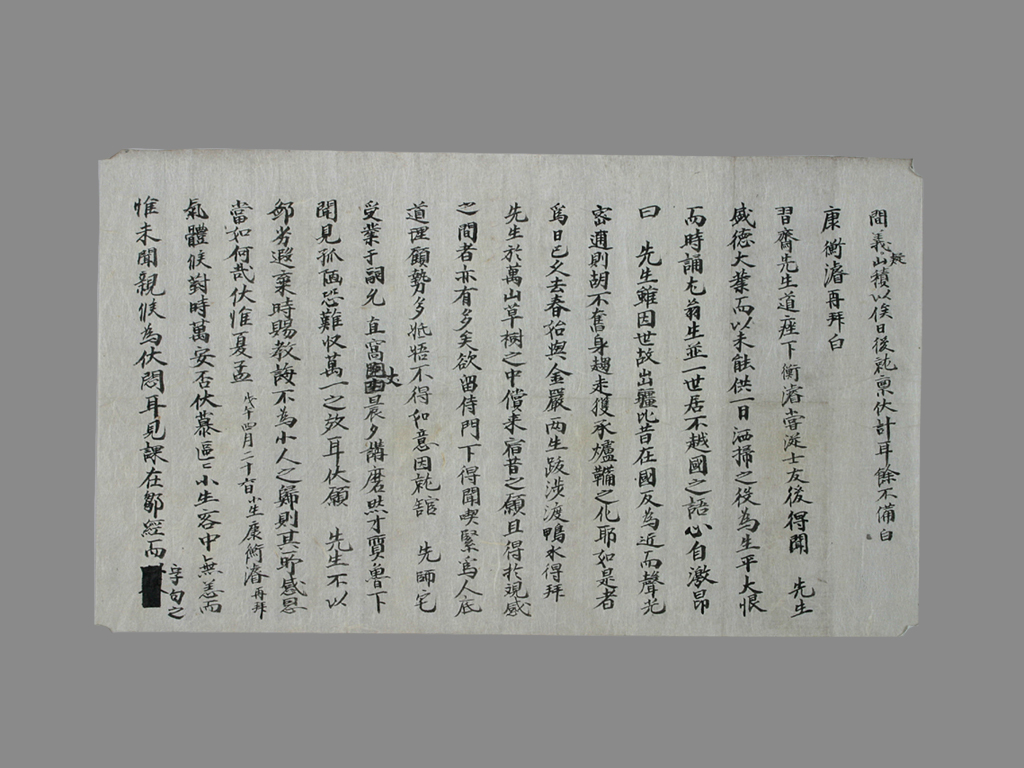 間義山積以俟日後就稟伏計耳餘不備白
疑
康衡濬再拜白
習齋先生道座下衡濬嘗從士友後得聞 先生
盛德大業而以未能供一日洒掃之役為生平大恨
而時誦尤翁生並一世居不越國之語心自激昂
曰 先生雖因世故出疆比昔在國反為近而聲光
密邇則胡不奮身趨走獲承爐鞴之化耶如是者
爲日已久去春始與金嚴兩生跋涉渡鴨水得拜
先生於萬山草樹之中償來宿昔之願且得於觀感
之間者亦有多矣欲留侍門下得聞喫緊爲人底
道理顧勢多牴牾不得如意因就館 先師宅
受業于嗣允直窩丈晨夕講磨然才質魯下
聞見孤陋恐難收萬一之效耳伏願 先生不以
鄙劣遐棄時賜教誨不為小人之歸則其所感恩
當如何哉伏惟夏孟 戊午四月二十日小生康衡濬再拜
氣體候對時萬安否伏慕區〻小生客中無恙而
惟未聞親候為伏悶耳見課在鄒經而字句之